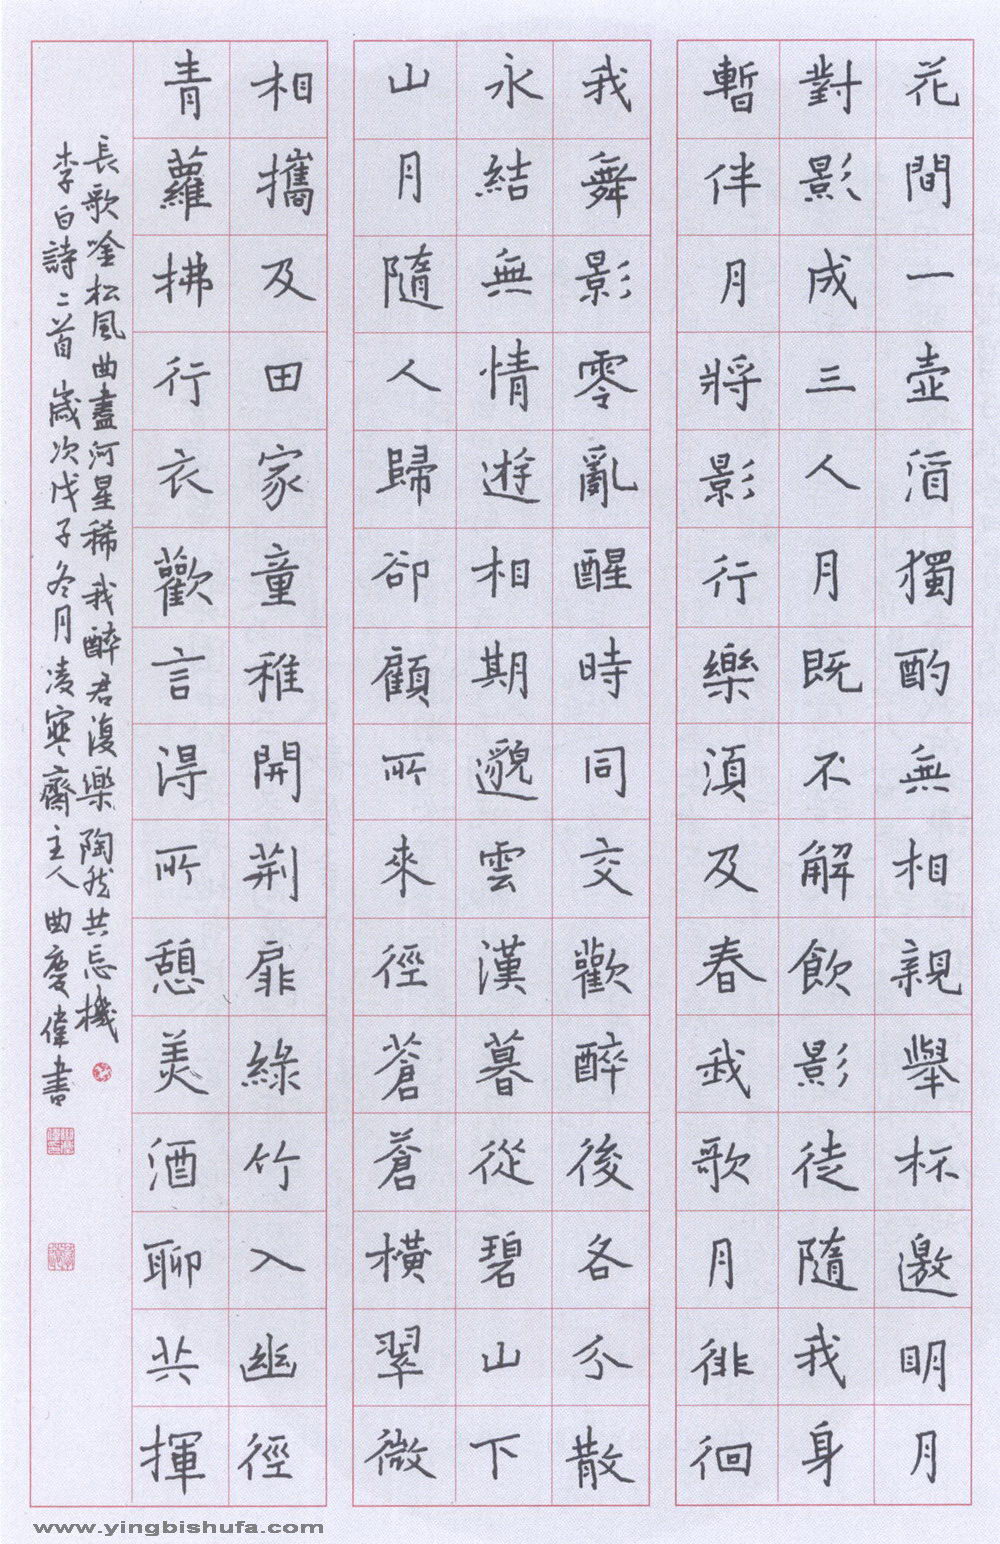 花間一壺酒獨酌無相親舉杯邀明月
對影成三人月既不解飲影徒隨我身
暫伴月將影行樂須及春我歌月徘徊
我舞影零亂醒時同交歡醉後各分散
永結無情遊相期邈雲漢暮從碧山下
山月隨人歸卻顧所來徑蒼蒼橫翠微
相攜及田家童稚開荊扉綠竹入幽徑
青蘿拂行衣歡言得所憩美酒聊共揮
長歌吟松風曲盡河星稀我醉君復樂陶然共忘機
李白詩二首 歲次戊子冬月凌寒齋主人曲慶偉書
www.yingbishufa.com